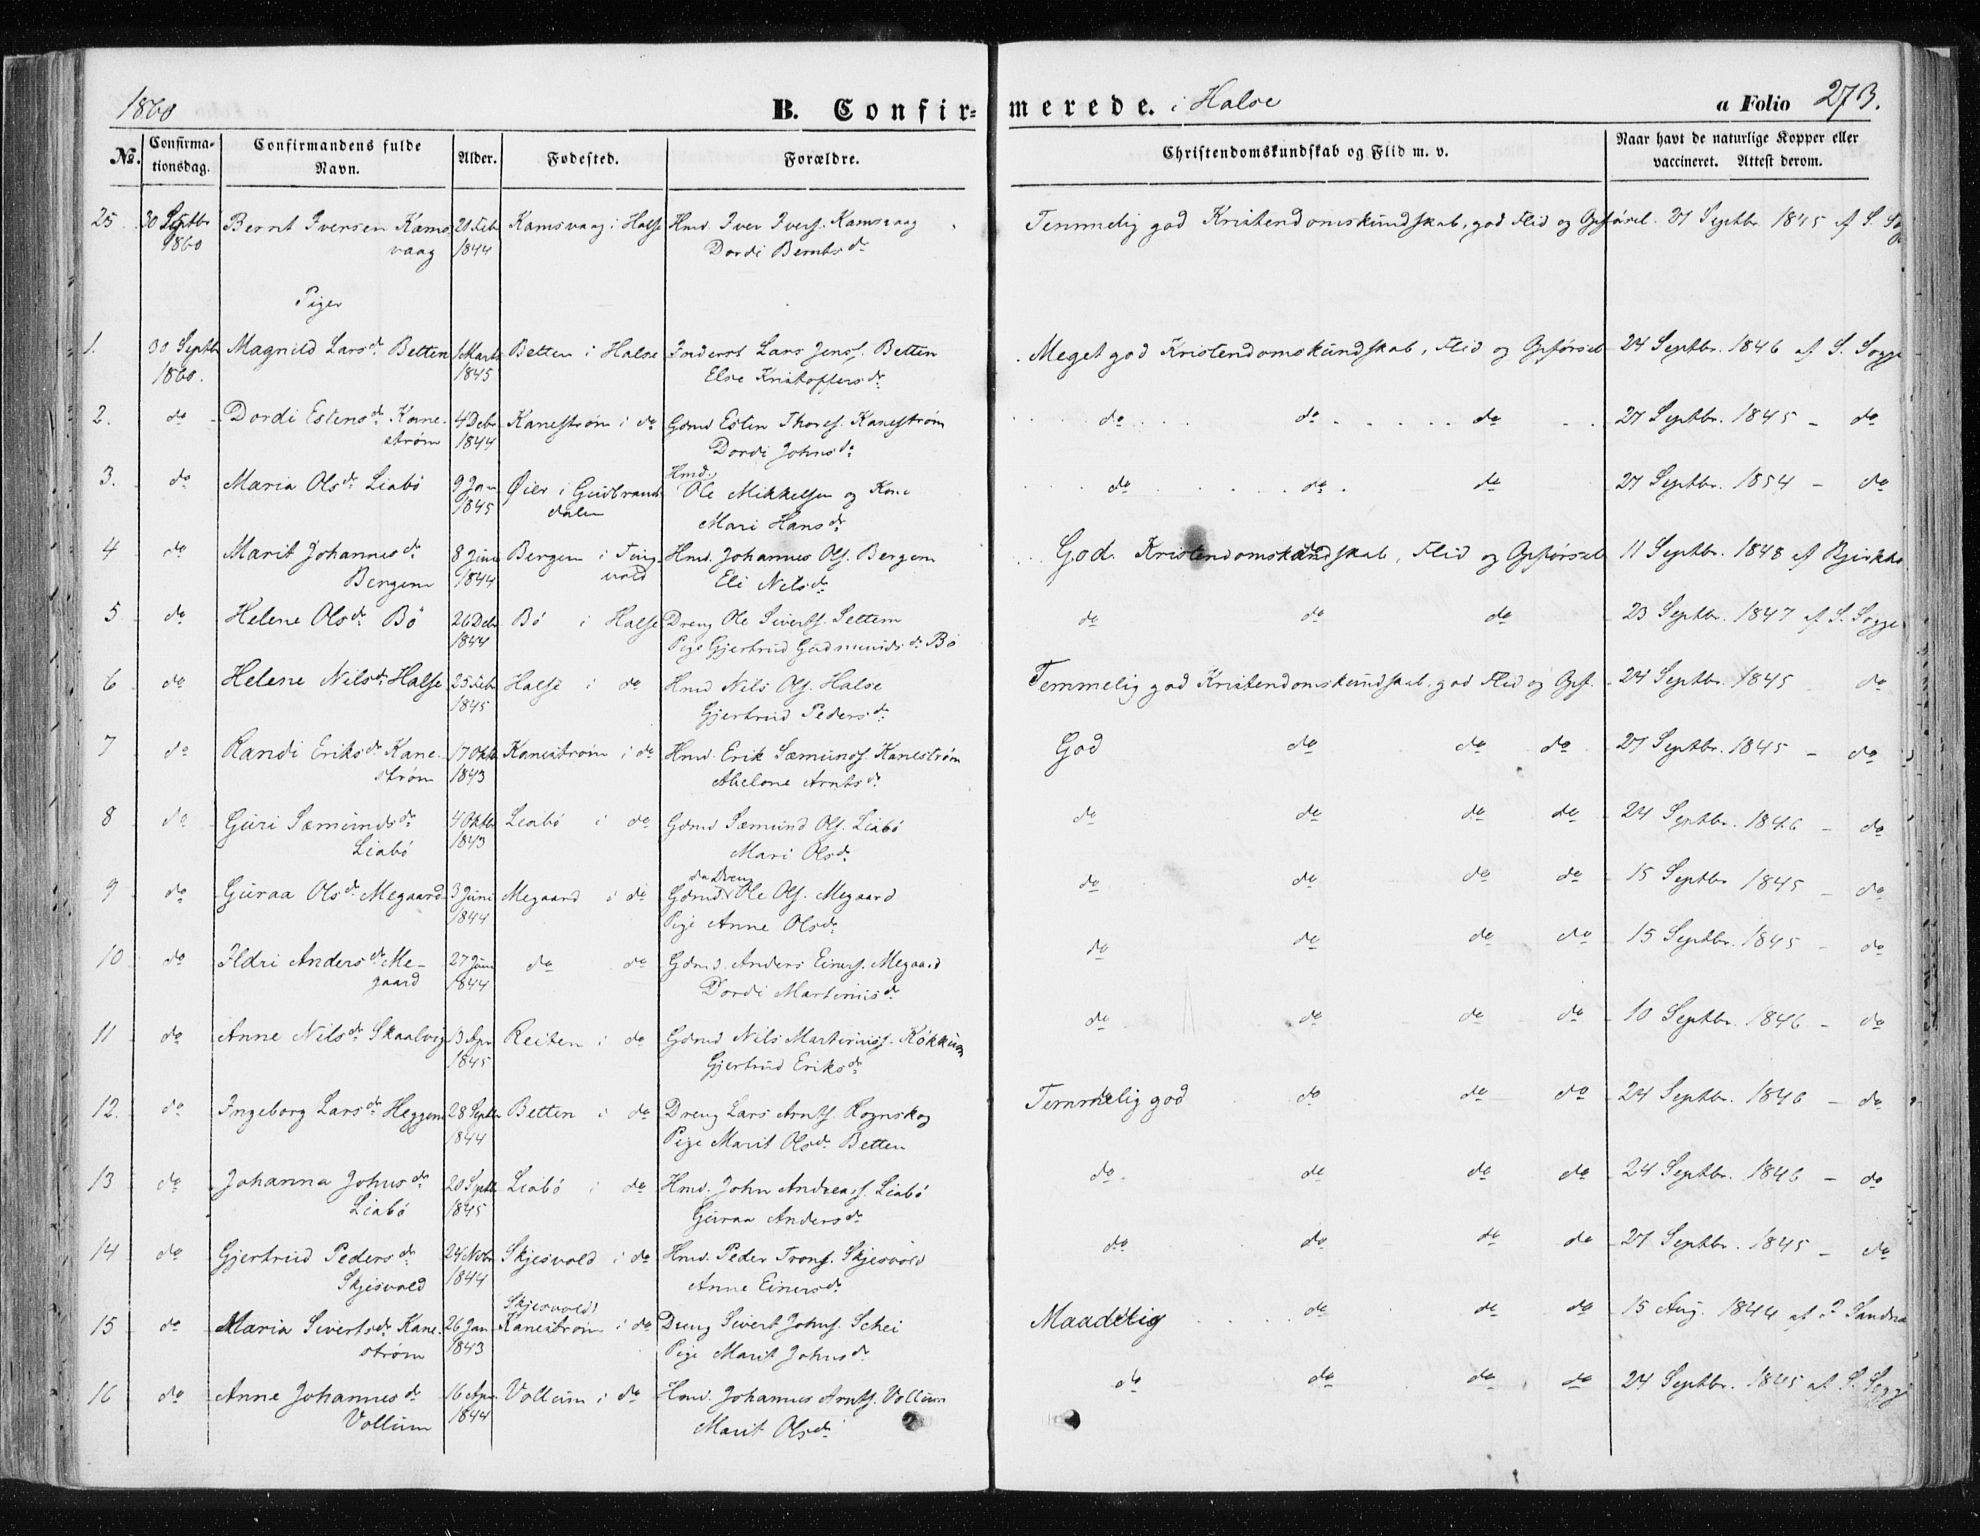 1860 B. Confir- merede. i Halse a Folio 273.
No. Confirma-tionsdag. Confirmandens fulde Navn. Alder. Fødested. Forældre. Christendomskundskab og Flid m. v. Naar havt de naturlige Kopper eller vaccineret. Attest derom.
25 30 Septbr Bernt Iversen Kams 21 Feb Kamsvaag i Halse Hmd. Iver Ivers. Kamsvaag Temmelig god Kristendomskundskab, god Flid og Opførsel. 27 Septbr. 1845 af S.
1860 vaag 1844 Dordi Bernts d:
Piger
1. 30 Septbr Magnild Lars d: Betten 1 Marts Betten i Halse Inderst Lars Jens. Betten Meget god Kristendomskundskab, Flid og Opførsel 24 Septbr. 1846 af S. Sogge
1860. 1845 Else Kristoffers d:
2. do Dordi Estens d: Kane- 4 Debr Kanestrøm i do Gdmd Esten Thores. Kanestrøm do do do 27 Septbr. 1845 – do
strøm 1844 Dordi Johns d:
3. do Maria Ols d: Liabö 9 Jan Øier i Gudbrands Hmd. Ole Mikkelsen og Kone do do do 27 Septbr. 1854 – do
1845 dalen Mari Hans d:
4 do Marit Johannes d: 8 Juni Bergem i Ting Hmd. Johannes Ols. Bergem God Kristendomskundskab, Flid og Opførsel 11 Septbr. 1848 af
Bergem 1844 vold Eli Nels d:
5 do Helene Ols d: Bö 26 Debr Bö i Halse Dreng Ole Siverts. Settem do do do 23 Septbr. 1847 af S. Sogge
1844 Pige Gjertrud Gudmunds d: Bö
6 do Helene Nils d: Halse 25 Feb Halse i do Hmd Nils Ols. Halse Temmelig god Kristendomskundskab, god Flid og Opf. 24 Septbr. 1845 do
1845 Gjertrud Peders d:
7 do Randi Eriks d: Kane- 17 Oktb Kanestrøm i do Hmd. Erik Sæmunds. Kanestrøm God do do do 27 Septbr. 1845 – do
strøm 1843 Abelone Arnts d:
8 do Guri Sæmunds d: 4 Oktb Liabö i do Gdmd Sæmund Ols. Liabö do do do 24 Septbr. 1846 – do
Liabö 1843 Mari Ols d:
da Dreng
9 do Guraa Ols d: Megaard 3 Juni Megaard i do Gdmd Ole Ols. Megaard do do do 15 Septbr 1845 – do
1844 Pige Anne Ols d:
10 do Ildri Anders d: Me- 27 Juni do do Gdmd. Anders Einers. Megaard do do do 15 Septbr. 1845 – do
gaard 1844 Dordi Martinus d:
11 do Anne Nils d: Skaalvig 13 Apr Reiten i do Gdmd Nils Martinus. Røkkum do do do 10 Septbr. 1846 – do
1845 Gjertrud Eriks d:
12. do Ingeborg Lars d: Heggem 28 Septbr Betten i do Dreng Lars Arnts. Rognskog Temmelig god do do do 24 Septbr. 1846 – do
1844 Pige Marit Ols d: Betten
13 do Johanna Johns d: 20 Septb Liabö i do Hmd. John Andreas. Liabö do. do do do 24 Septbr. 1846 – do
Liabö 1845 Guraa Anders d:
14 do Gjertrud Peders d: 24 Novbr Skjesvold i do Hmd. Peder Trons. Skjesvold do do do do 27 Septbr. 1845 – do
Skjesvold 1844 Anne Einers d:
Skjesvold
15 do Maria Siverts d: Kane- 26 Jan Kanestrøm i do Dreng Sivert Johns. Schei Maadelig do do do 15 Aug. 1844 af
strøm 1843 Pige Marit Johns d:
16 do Anne Johannes d: 16 Apr Vollum i do Hmd. Johannes Arnts. Vollum do do do do 24 Septbr. 1845 af S. Sogge
Vollum 1844 Marit Ols d: